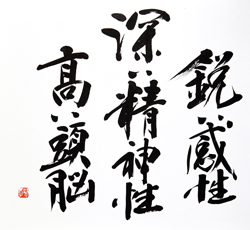 鋭い感性
深い精神性
高い頭脳